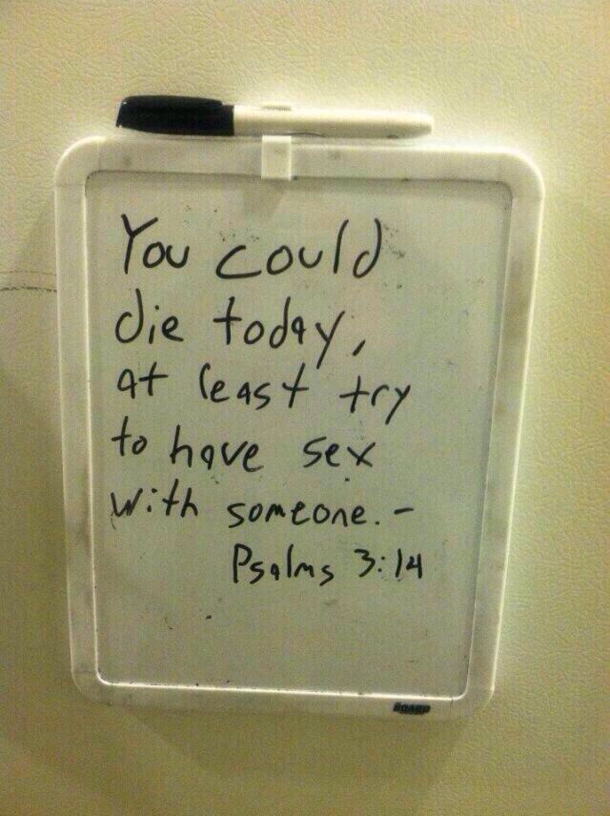 You could
die today,
at least try
to have sex
with someone. -
Psalms 3:14
BOARD